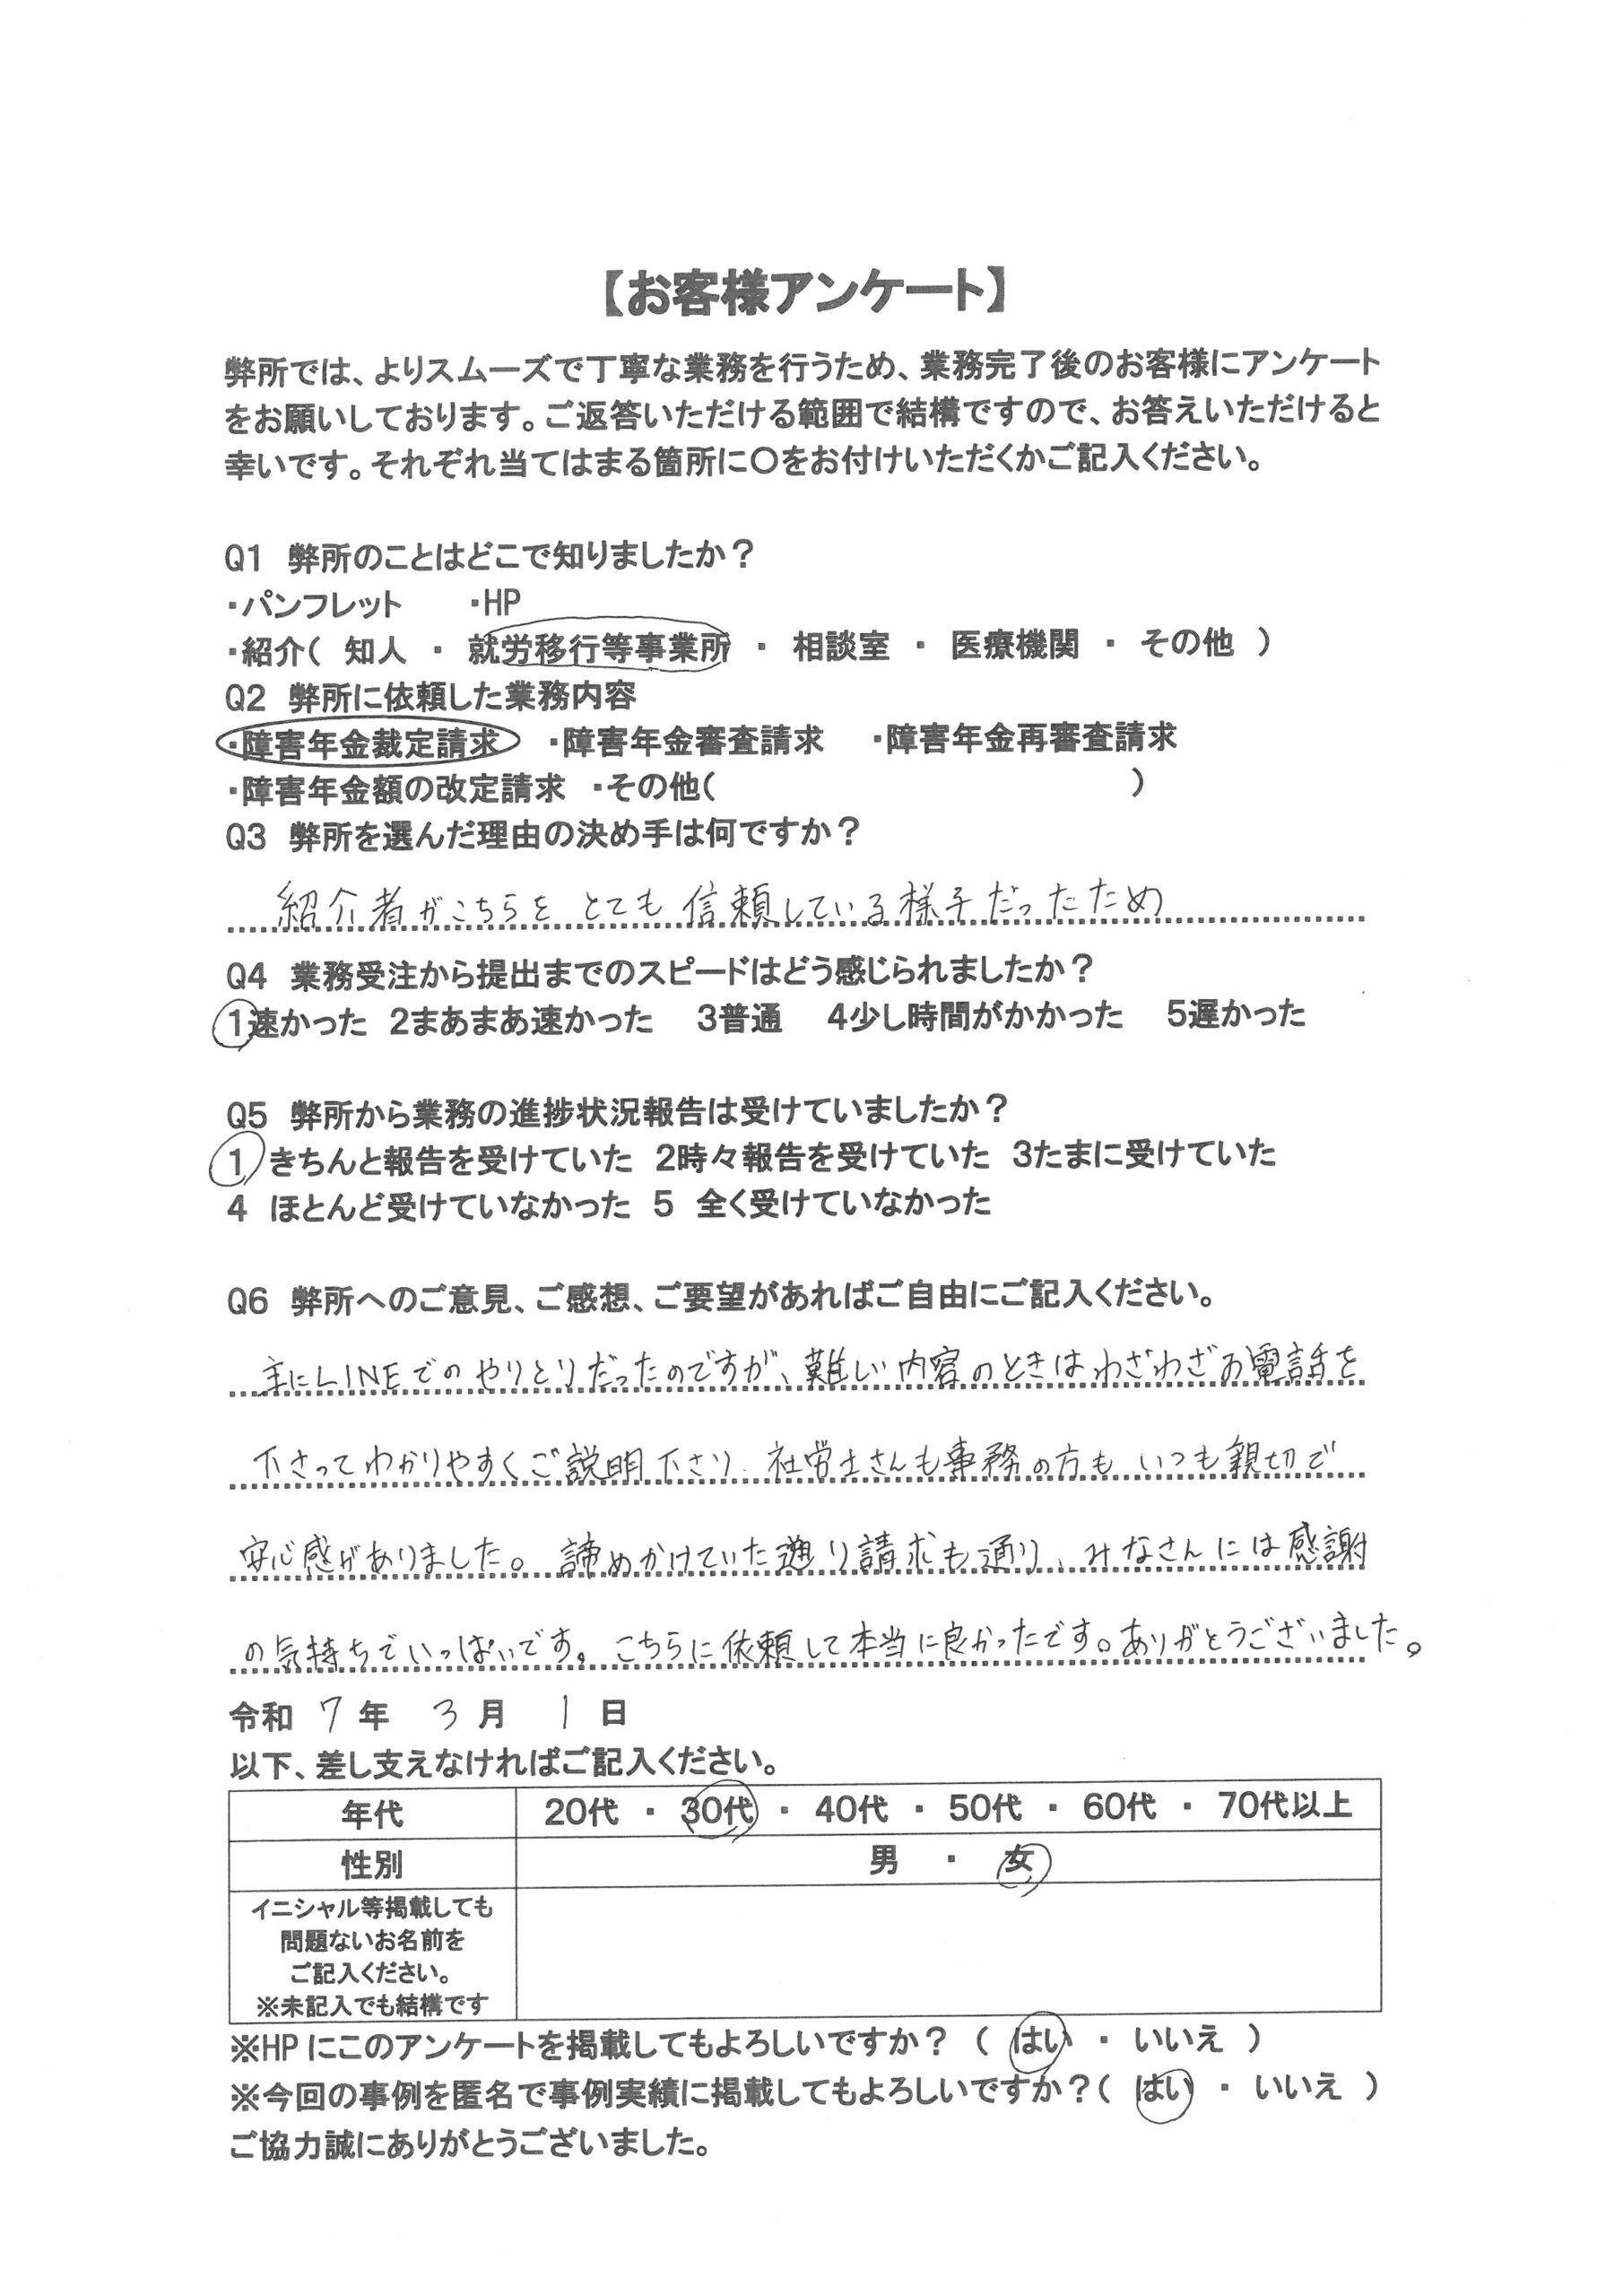 【お客様アンケート】
弊所では、よりスムーズで丁寧な業務を行うため、業務完了後のお客様にアンケート
をお願いしております。ご返答いただける範囲で結構ですので、お答えいただけると
幸いです。それぞれ当てはまる箇所に〇をお付けいただくかご記入ください。
Q1 弊所のことはどこで知りましたか？
・パンフレット ・HP
・紹介( 知人 ・ 就労移行等事業所 ・ 相談室 ・ 医療機関 ・ その他 )
Q2 弊所に依頼した業務内容
・障害年金裁定請求 ・障害年金審査請求 ・障害年金再審査請求
・障害年金額の改定請求 ・その他( )
Q3 弊所を選んだ理由の決め手は何ですか？
紹介者がこちらをとても信頼している様子だったため
Q4 業務受注から提出までのスピードはどう感じられましたか？
1速かった 2まあまあ速かった 3普通 4少し時間がかかった 5遅かった
Q5 弊所から業務の進捗状況報告は受けていましたか？
1 きちんと報告を受けていた 2時々報告を受けていた 3たまに受けていた
4 ほとんど受けていなかった 5 全く受けていなかった
Q6 弊所へのご意見、ご感想、ご要望があればご自由にご記入ください。
主にLINEでのやりとりだったのですが、難しい内容のときはわざわざお電話を
下さってわかりやすくご説明下さり、社労士さんも事務の方も いつも親切で
安心感がありました。諦めかけていた遡り請求も通り、みなさんには感謝
の気持ちでいっぱいです。こちらに依頼して本当に良かったです。ありがとうございました。
令和 7 年 3 月 1 日
以下、差し支えなければご記入ください。
年代 20代 ・ 30代 ・ 40代 ・ 50代 ・ 60代 ・ 70代以上
性別 男 ・ 女
イニシャル等掲載しても
問題ないお名前を
ご記入ください。
※未記入でも結構です
※HPにこのアンケートを掲載してもよろしいですか？ ( はい ・ いいえ )
※今回の事例を匿名で事例実績に掲載してもよろしいですか？( はい ・ いいえ )
ご協力誠にありがとうございました。